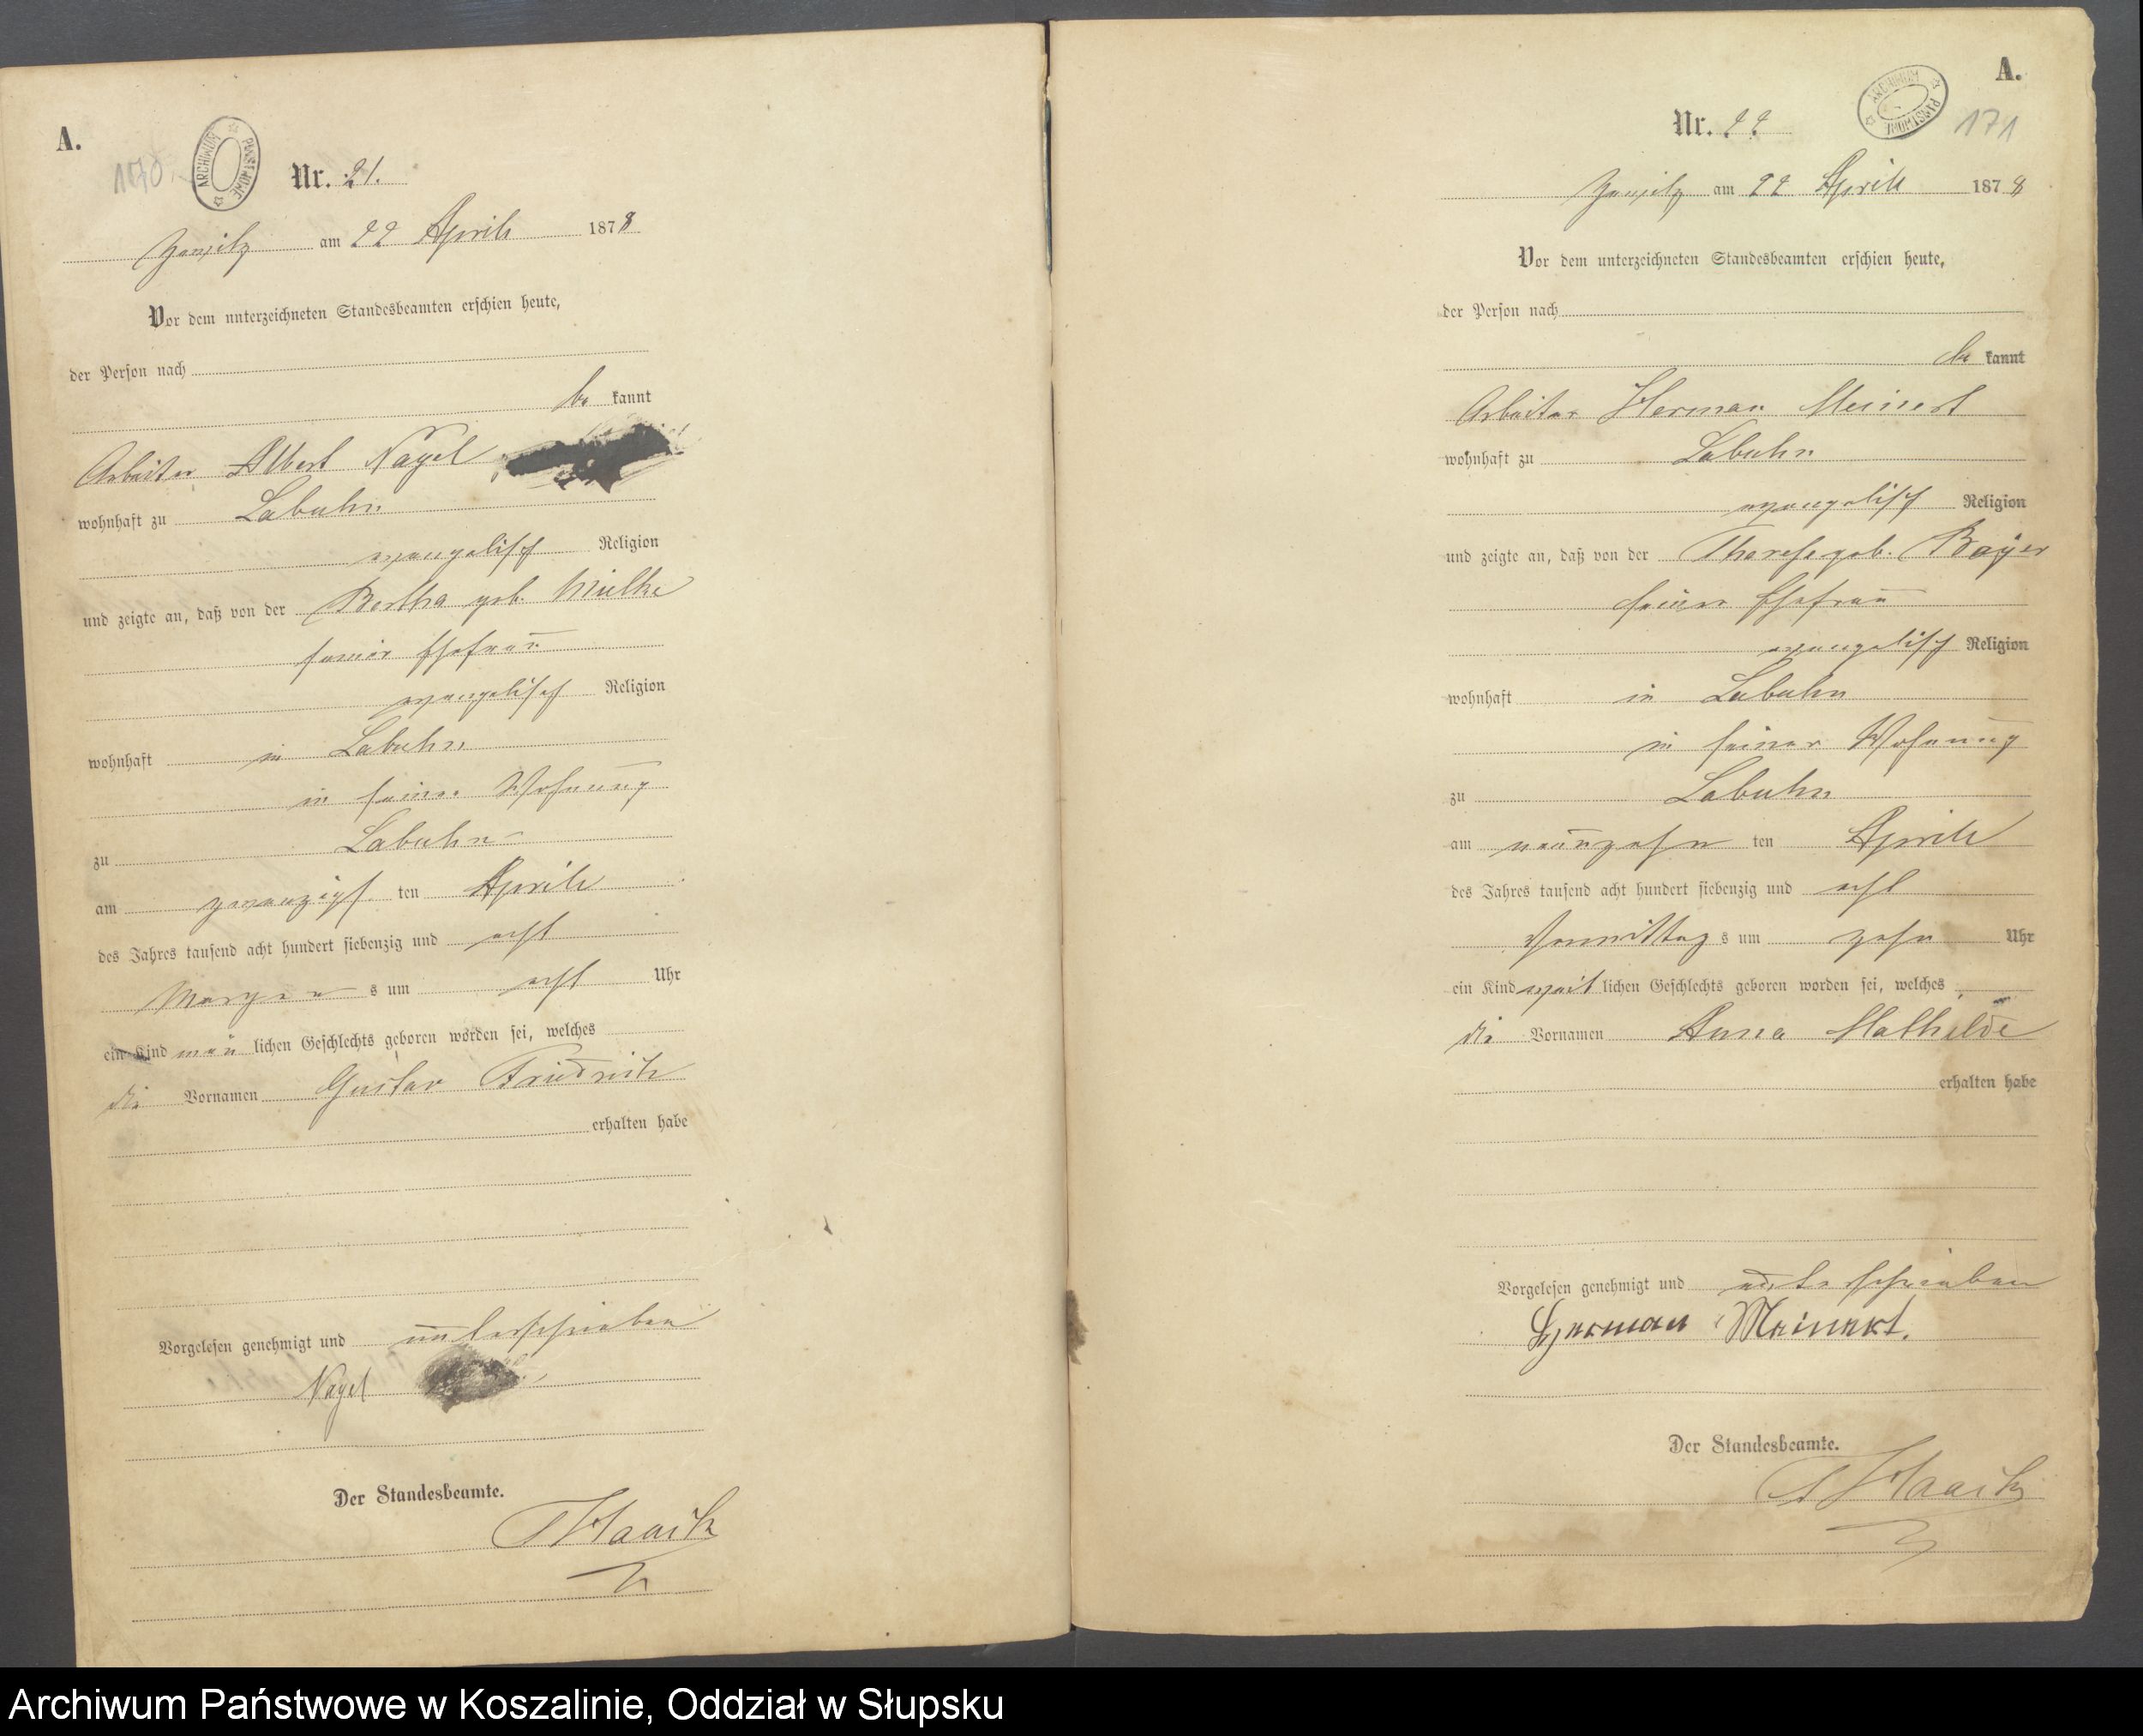 A.
170
ARCHIWUM PAŃSTWOWE
Nr. 21.
am 22 Aprill 1878
Vor dem unterzeichneten Standesbeamten erschien heute,
der Person nach
be kannt
Arbeiter Albert Nagel
wohnhaft zu Labuhn
evangelisch Religion
und zeigte an, daß von der Bertha geb. Mielke
seiner Ehefrau
evangelisch Religion
wohnhaft in Labuhn
in seiner Wohnung
zu Labuhn
am zwanzigs ten Aprill
des Jahres tausend acht hundert siebenzig und acht
Morgen s um acht Uhr
ein Kind män lichen Geschlechts geboren worden sei, welches
die Vornamen Gustav Friedrich
erhalten habe
Vorgelesen genehmigt und unterschrieben
Nagel
Der Standesbeamte.
Haack
A.
ARCHIWUM PAŃSTWOWE
171
Nr. 22
am 22 Aprill 1878
Vor dem unterzeichneten Standesbeamten erschien heute,
der Person nach
be kannt
Arbeiter Herman Meinert
wohnhaft zu Labuhn
evangelisch Religion
und zeigte an, daß von der Therese geb. Bayer
seiner Ehefrau
evangelisch Religion
wohnhaft in Labuhn
in seiner Wohnung
zu Labuhn
am neunzehn ten Aprill
des Jahres tausend acht hundert siebenzig und acht
Vormittag s um zehn Uhr
ein Kind weib lichen Geschlechts geboren worden sei, welches
die Vornamen Anna Mathilde
erhalten habe
Vorgelesen genehmigt und unterschrieben
Herman Meinert.
Der Standesbeamte.
Haack
Archiwum Państwowe w Koszalinie, Oddział w Słupsku